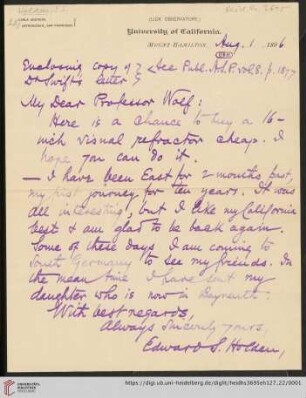 LICK OBSERVATORY
University of California.
MOUNT HAMILTON, Aug. 1. 1896
Enclosing copy of } See Publ. A.S.P. vol 8. p. 1897
Dr Swift's letter }
My Dear Professor Wolf:
Here is a chance to buy a 16-
inch visual refractor cheap. I
hope you can do it.
— I have been East for 2 months past,
my first journey for ten years. It was
all interesting, but I like my California
best & am glad to be back again.
Some of these days I am coming to
South Germany to see my friends. In
the mean time I have sent my
daughter who is now in Bayreuth.
With best regards,
Always sincerely yours,
Edward S. Holden,
UNIVERSITÄTS-
BIBLIOTHEK
HEIDELBERG
https://digi.ub.uni-heidelberg.de/diglit/heidhs3695eh127_22/0001